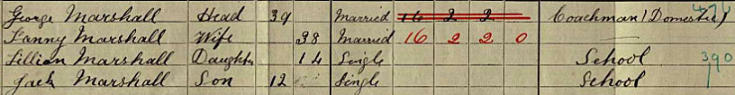 George Marshall Head 39 Married 16 2 2 Coachman (Domestic)
Fanny Marshall Wife 38 Married 16 2 2 0
Lillian Marshall Daughter 14 Single School 390
Jack Marshall Son 12 Single School